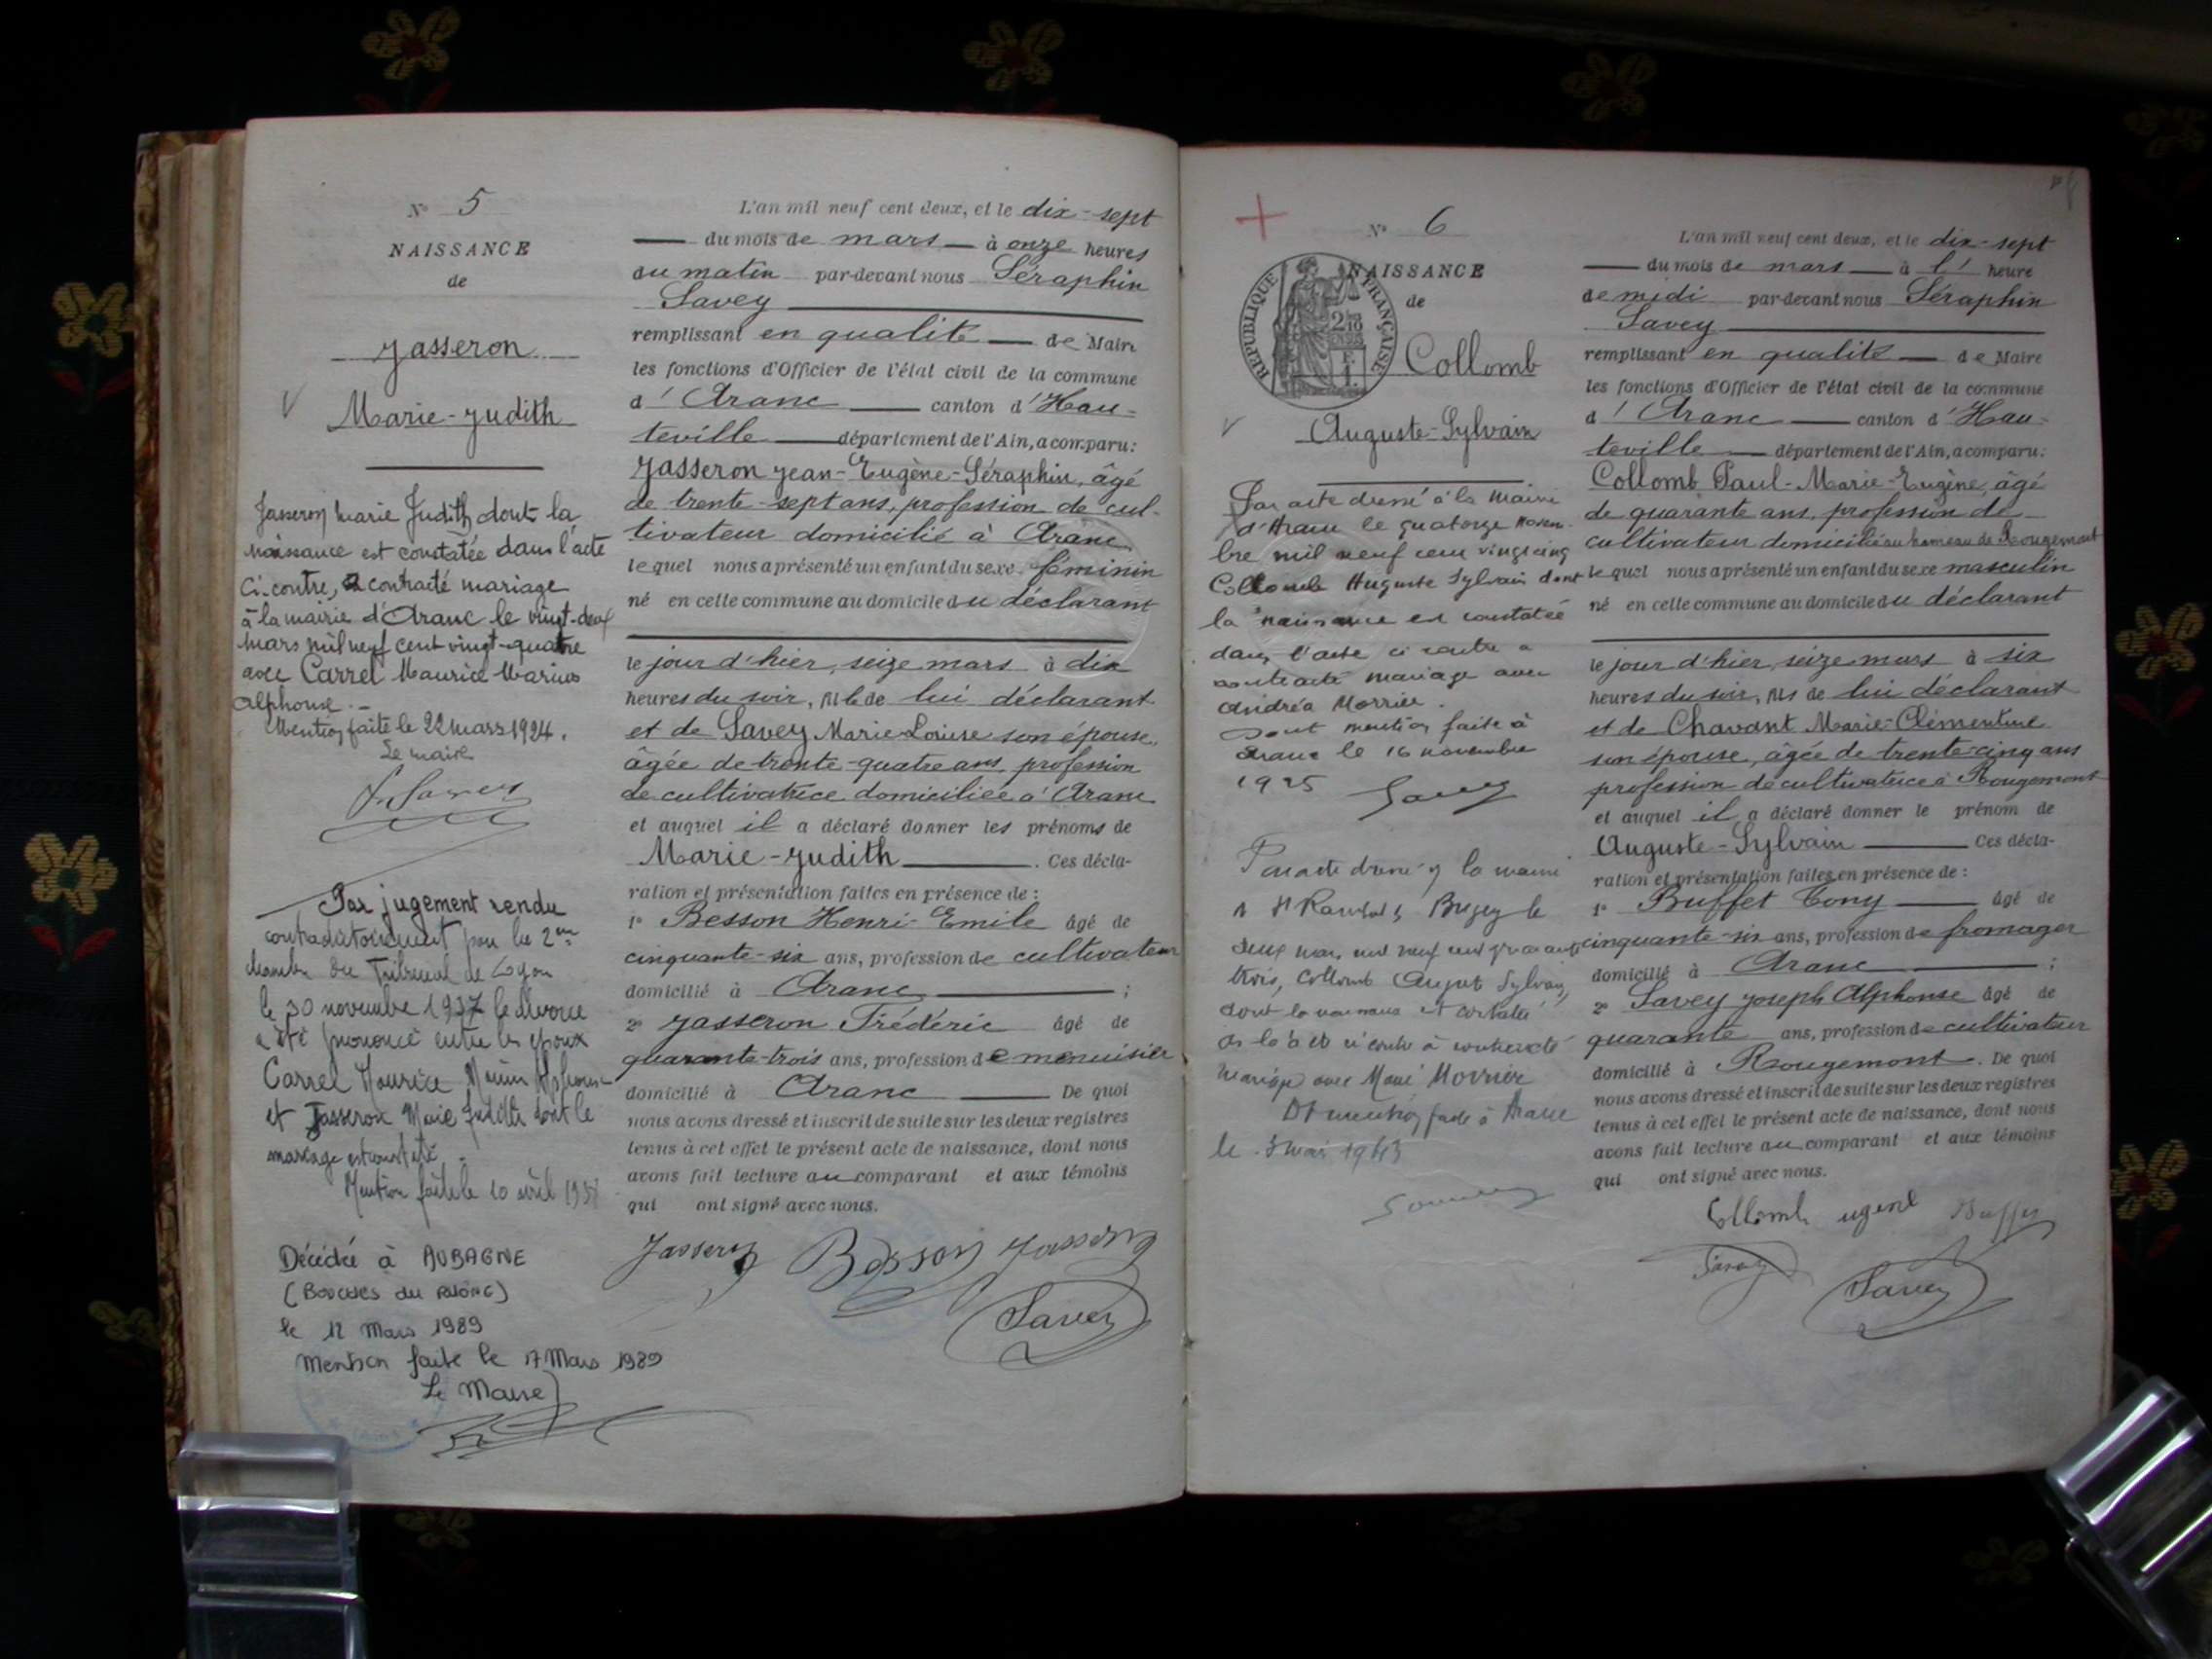 N° 5
NAISSANCE
de
Jasseron
Marie-Judith
Jasseron Marie Judith dont la
naissance est constatée dans l'acte
ci-contre, a contracté mariage
à la mairie d'Aranc le vingt-deux
mars mil neuf cent vingt-quatre
avec Carrel Maurice Marius
Alphonse.-
Mention faite le 22 mars 1924.
Le maire
Par jugement rendu
contradictoirement par la 2me
chambre du Tribunal de Lyon
le 30 novembre 1937 le divorce
a été prononcé entre les époux
Carrel Maurice Marius Alphonse
et Jasseron Marie Judith dont le
mariage est constaté.
Mention faite le 10 avril
Décédée à AUBAGNE
(Bouches du RHÔNE)
le 12 Mars 1989
Mention faite le 17 Mars 1989
Le Maire
L'an mil neuf cent deux, et le dix-sept
du mois de mars à onze heures
du matin par-devant nous Séraphin
Savey
remplissant en qualité de Maire
les fonctions d'Officier de l'état civil de la commune
d'Aranc canton d'Hau-
teville département de l'Ain, a comparu:
Jasseron Jean-Eugène-Séraphin, âgé
de trente-sept ans, profession de cul-
tivateur domicilié à Aranc
lequel nous a présenté un enfant du sexe féminin
né en cette commune au domicile du déclarant
le jour d'hier, seize mars à dix
heures du soir, fille de lui déclarant
et de Savey Marie-Louise son épouse,
âgée de trente-quatre ans, profession
de cultivatrice domiciliée à Aranc
et auquel il a déclaré donner les prénoms de
Marie-Judith . Ces décla-
ration et présentation faites en présence de :
1° Besson Henri-Emile âgé de
cinquante-six ans, profession de cultivateur
domicilié à Aranc ;
2° Jasseron Frédéric âgé de
quarante-trois ans, profession de menuisier
domicilié à Aranc De quoi
nous avons dressé et inscrit de suite sur les deux registres
tenus à cet effet le présent acte de naissance, dont nous
avons fait lecture au comparant et aux témoins
qui ont signé avec nous.
Jasseron Besson Jasseron
Savey
N° 6
NAISSANCE
de
RÉPUBLIQUE FRANÇAISE
Collomb
Auguste-Sylvain
Par acte dressé à la Mairie
d'Aranc le quatorze novem-
bre mil neuf cent vingt cinq
Collomb Auguste Sylvain dont
la naissance est constatée
dans l'acte ci contre a
contracté mariage avec
Andréa Morrier.
Dont mention faite à
Aranc le 16 novembre
1925 Savey
Par acte dressé la mairie
St Rambert Bugey le
deux mars mil neuf cent quarante
trois, Collomb August Sylvain,
dont la naissance est constatée
contracté
mariage avec Morrier
Dt mention faite à Aranc
le mars 1943
L'an mil neuf cent deux, et le dix-sept
du mois de mars à l' heure
de midi par-devant nous Séraphin
Savey
remplissant en qualité de Maire
les fonctions d'Officier de l'état civil de la commune
d'Aranc canton d'Hau-
teville département de l'Ain, a comparu:
Collomb Paul-Marie-Eugène, âgé
de quarante ans, profession de
cultivateur domicilié au hameau de Rougemont
lequel nous a présenté un enfant du sexe masculin
né en cette commune au domicile du déclarant
le jour d'hier, seize mars à six
heures du soir, fils de lui déclarant
et de Chavant Marie-Clémentine
son épouse, âgée de trente-cinq ans
profession de cultivatrice à Rougemont
et auquel il a déclaré donner le prénom de
Auguste-Sylvain Ces décla-
ration et présentation faites en présence de :
1° Buffet Tony âgé de
cinquante-six ans, profession de fromager
domicilié à Aranc ;
2° Savey Joseph Alphonse âgé de
quarante ans, profession de cultivateur
domicilié à Rougemont. De quoi
nous avons dressé et inscrit de suite sur les deux registres
tenus à cet effet le présent acte de naissance, dont nous
avons fait lecture au comparant et aux témoins
qui ont signé avec nous.
Collomb ugene Buffet
Savey Savey